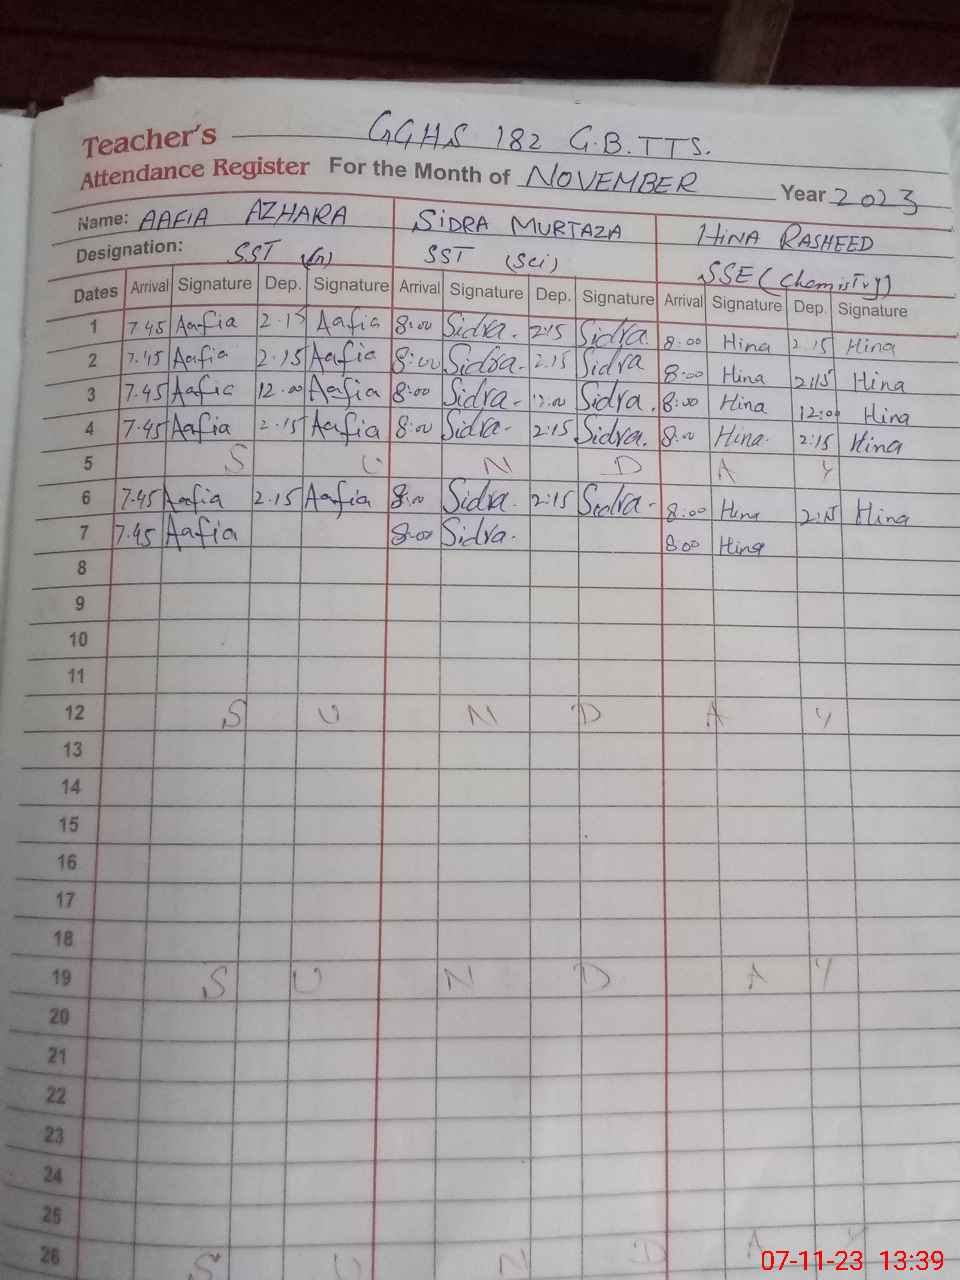 Teacher's GGHS 182 G.B. TTS.
Attendance Register For the Month of NOVEMBER Year 2023
Name: AAFIA AZHARA SIDRA MURTAZA HINA RASHEED
Designation: SST SST (Sci) SSE (Chemistry)
Dates Arrival Signature Dep. Signature Arrival Signature Dep. Signature Arrival Signature Dep. Signature
1 7.45 Aafia 2.15 Aafia 8:00 Sidra. 2:15 Sidra. 8:00 Hina 2.15 Hina
2 7.45 Aafia 2.15 Aafia 8:00 Sidra. 2.15 Sidra 8:00 Hina 2:15 Hina
3 7.45 Aafia 12.00 Aafia 8:00 Sidra. 12.00 Sidra. 8:00 Hina 12:00 Hina
4 7.45 Aafia 2.15 Aafia 8:00 Sidra. 2:15 Sidra. 8:00 Hina. 2:15 Hina
5 S U N D A Y
6 7.45 Aafia 2.15 Aafia 8:00 Sidra. 2:15 Sidra. 8:00 Hina 2:15 Hina
7 7.45 Aafia 8:00 Sidra. 8:00 Hina
8
9
10
11
12 S U N D A Y
13
14
15
16
17
18
19 S U N D A Y
20
21
22
23
24
25
26 S U N D A Y
07-11-23 13:39